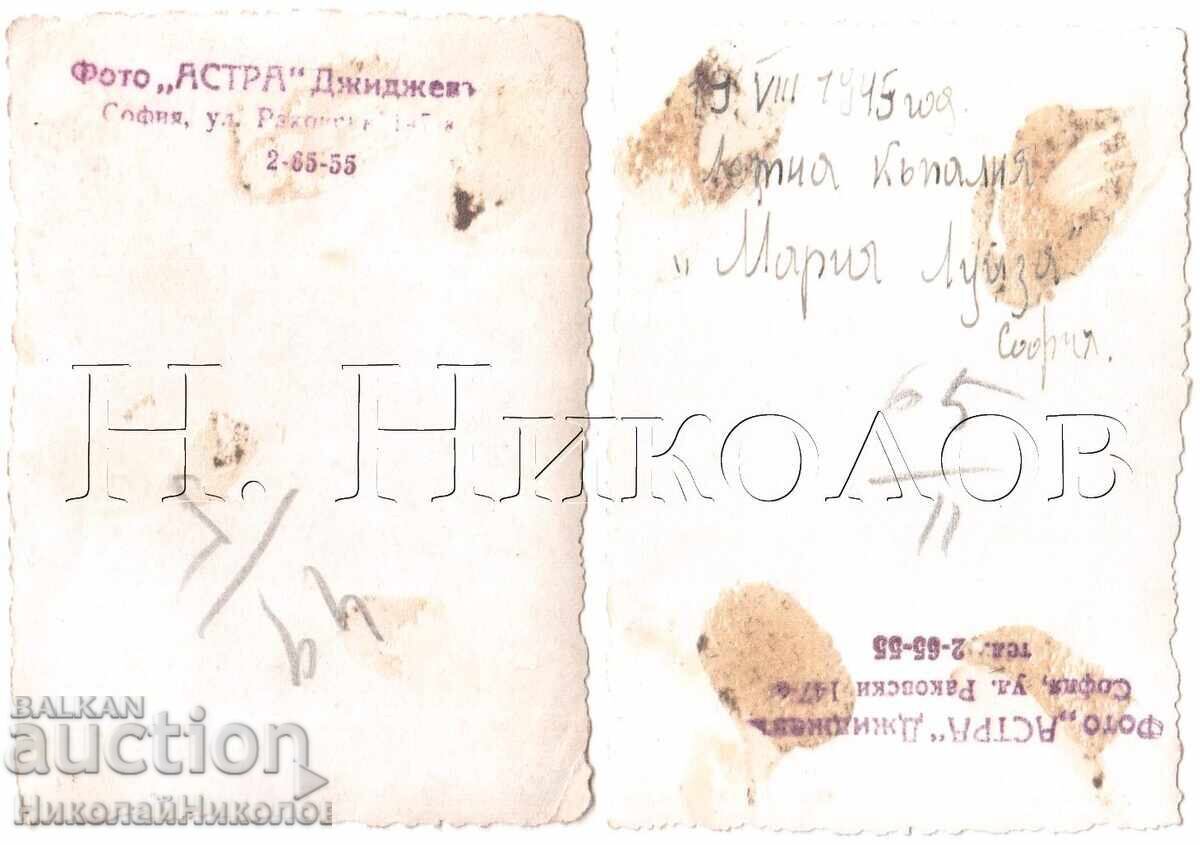 Фото „АСТРА“ Джиджевъ
София, ул. Раковски 147а
2-65-55
19 VIII 1945 год.
Лятна къпалня
„Мария Луйза“
София.
65
11
Н. Николов
Фото „АСТРА“ Джиджевъ
София, ул. Раковски 147а
тел. 2-65-55
BALKAN
auction
НиколайНиколов